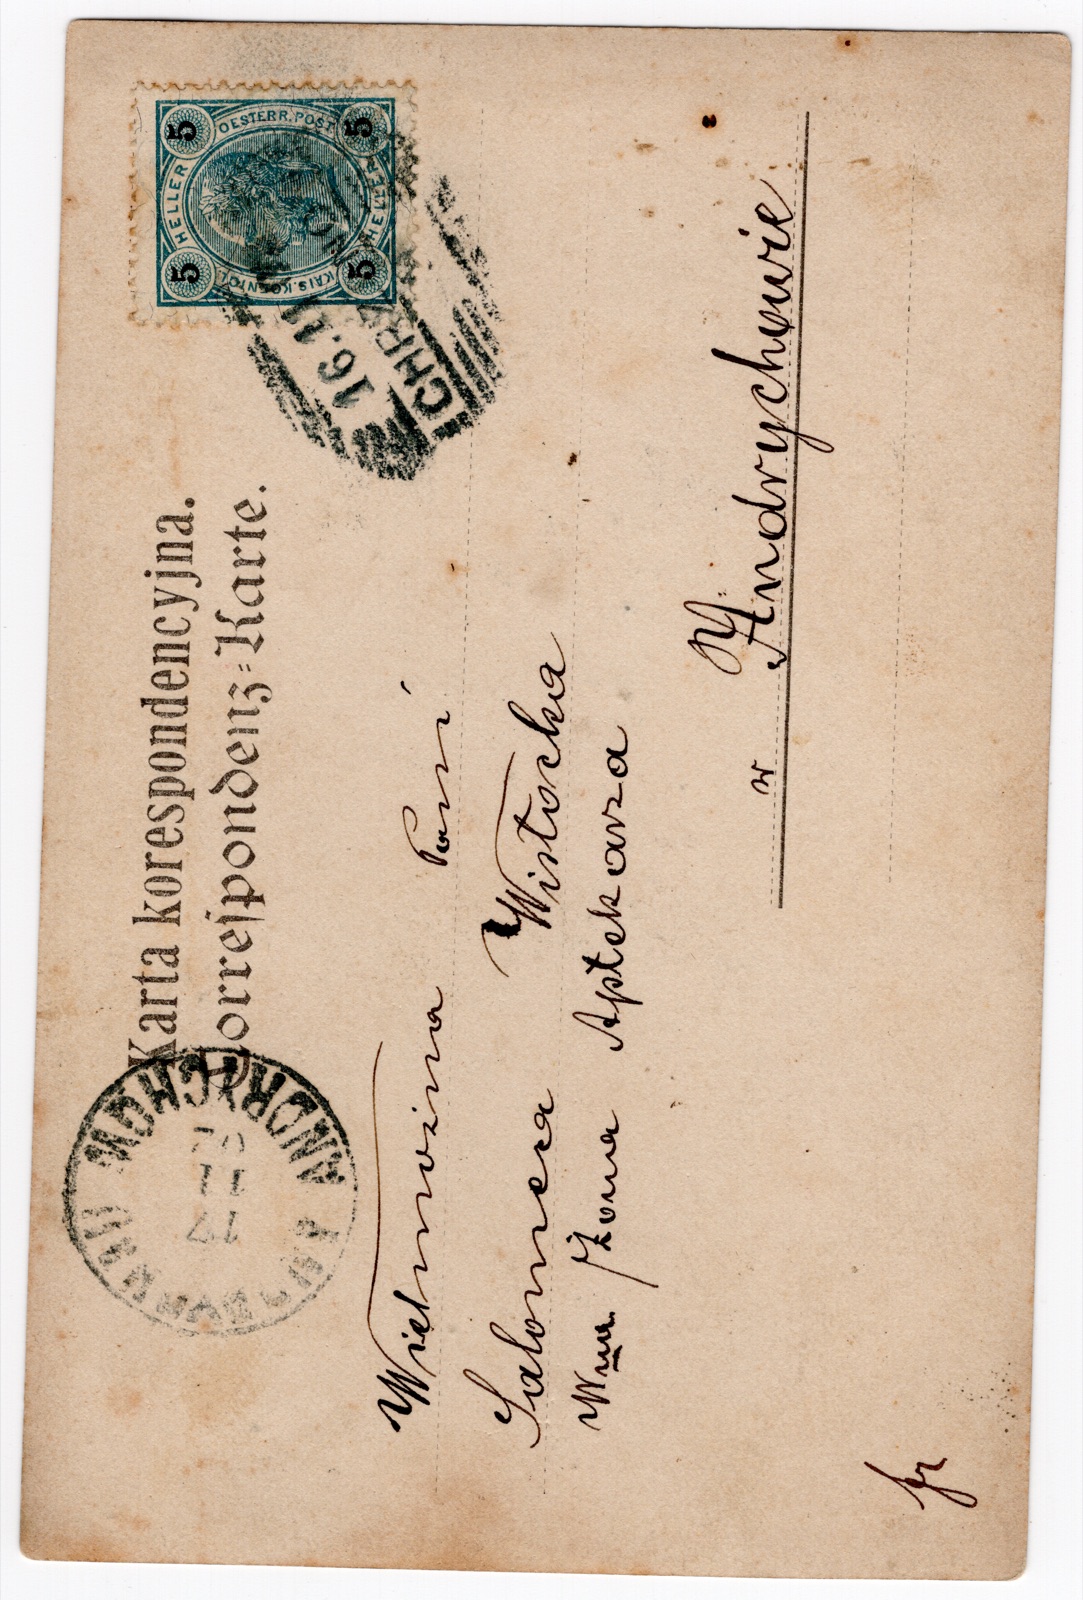 Karta korespondencyjna.
Correspondenz-Karte.
5 5
OESTERR. POST
HELLER HELLER
KAIS. KOENIGL.
5 5
16. 11
ANDRYCHÓW ANDRYCHAU
17
11
02
Wielmożna Pani
Salomea Wistocka
Wna Żona Aptekarza
w Andrychowie